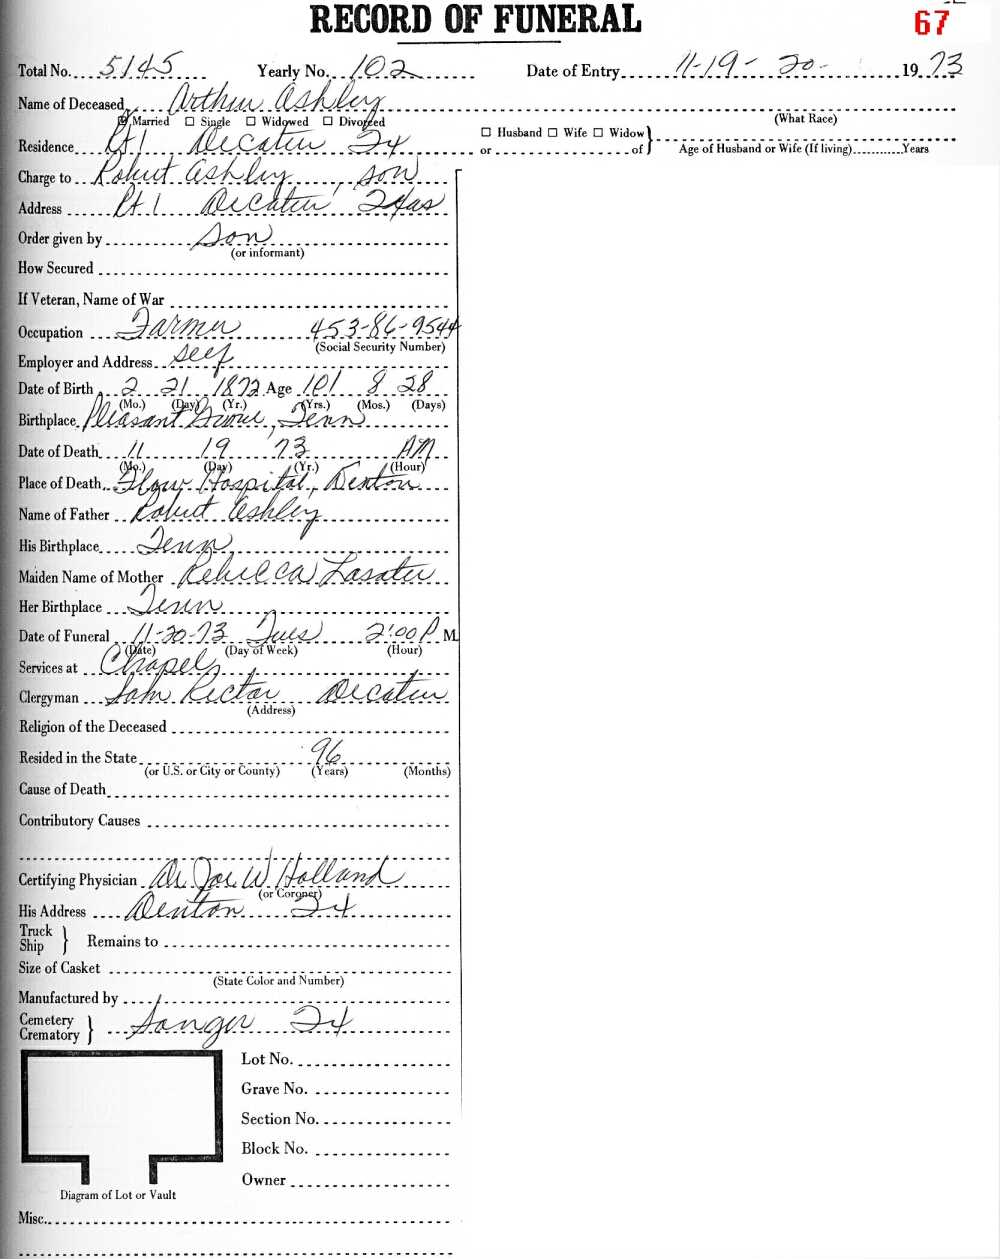 RECORD OF FUNERAL
67
Total No. 5145 Yearly No. 102 Date of Entry 11-19-20- 1973
Name of Deceased Arthur Ashley
(What Race)
☒ Married ☐ Single ☐ Widowed ☐ Divorced
☐ Husband ☐ Wife ☐ Widow
Residence Rt 1 Decatur Tx or of Age of Husband or Wife (If living) Years
Charge to Robert Ashley, son
Address Rt 1 Decatur Texas
Order given by Son
(or informant)
How Secured
If Veteran, Name of War
Occupation Farmer 453-86-9544
(Social Security Number)
Employer and Address self
Date of Birth 2 21 1872 Age 101 8 28
(Mo.) (Day) (Yr.) (Yrs.) (Mos.) (Days)
Birthplace Pleasant Grove, Tenn
Date of Death 11 19 73 AM
(Mo.) (Day) (Yr.) (Hour)
Place of Death Flow Hospital, Denton
Name of Father Robert Ashley
His Birthplace Tenn
Maiden Name of Mother Rebecca Lasater
Her Birthplace Tenn
Date of Funeral 11-20-73 Tues 2:00 P. M.
(Date) (Day of Week) (Hour)
Services at Chapel
Clergyman Sam Rector Decatur
(Address)
Religion of the Deceased
Resided in the State 96
(or U.S. or City or County) (Years) (Months)
Cause of Death
Contributory Causes
Certifying Physician Dr. Joe W Holland
(or Coroner)
His Address Denton Tx
Truck
Ship } Remains to
Size of Casket
(State Color and Number)
Manufactured by
Cemetery
Crematory } Sanger Tx
Lot No.
Grave No.
Section No.
Block No.
Owner
Diagram of Lot or Vault
Misc.